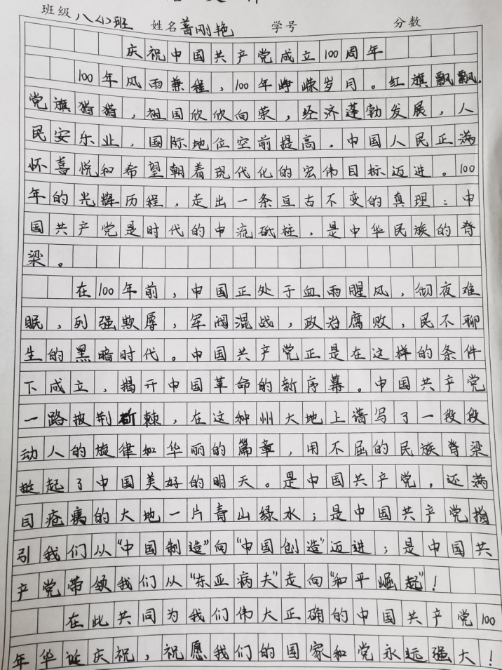 班级八(2)班 姓名 刚艳 学号 分数
庆祝中国共产党成立100周年
100年风雨兼程，100年峥嵘岁月。红旗飘飘，
党旗猎猎，祖国欣欣向荣，经济蓬勃发展，人
民安乐业，国际地位空前提高，中国人民正满
怀喜悦和希望朝着现代化的宏伟目标迈进。100
年的光辉历程，走出一条亘古不变的真理：中
国共产党是时代的中流砥柱，是中华民族的脊
梁。
在100年前，中国正处于血雨腥风，彻夜难
眠，列强欺辱，军阀混战，政治腐败，民不聊
生的黑暗时代。中国共产党正是在这样的条件
下成立，揭开中国革命的新序幕。中国共产党
一路披荆斩棘，在这神州大地上谱写了一段段
动人的旋律和华丽的篇章，用不屈的民族脊梁
挺起了中国美好的明天。是中国共产党，还满
目疮痍的大地一片青山绿水；是中国共产党指
引我们从“中国制造”向“中国创造”迈进；是中国共
产党带领我们从“东亚病夫”走向“和平崛起”！
在此共同为我们伟大正确的中国共产党100
年华诞庆祝，祝愿我们的国家和党永远强大！